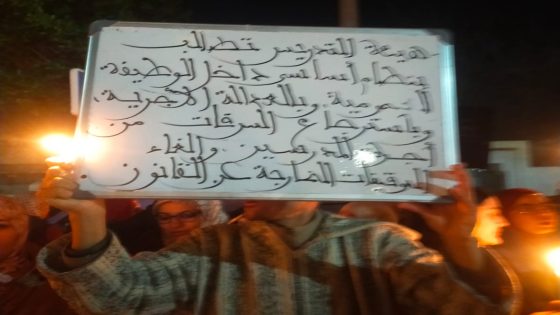 هيئة التدريس تطالب
بنظام أساسي داخل الوظيفة
العمومية، وبالعدالة الأجرية،
وباسترجاع السرقات من
أجور المدرسين وإلغاء
التوقيفات الخارجة عن القانون.